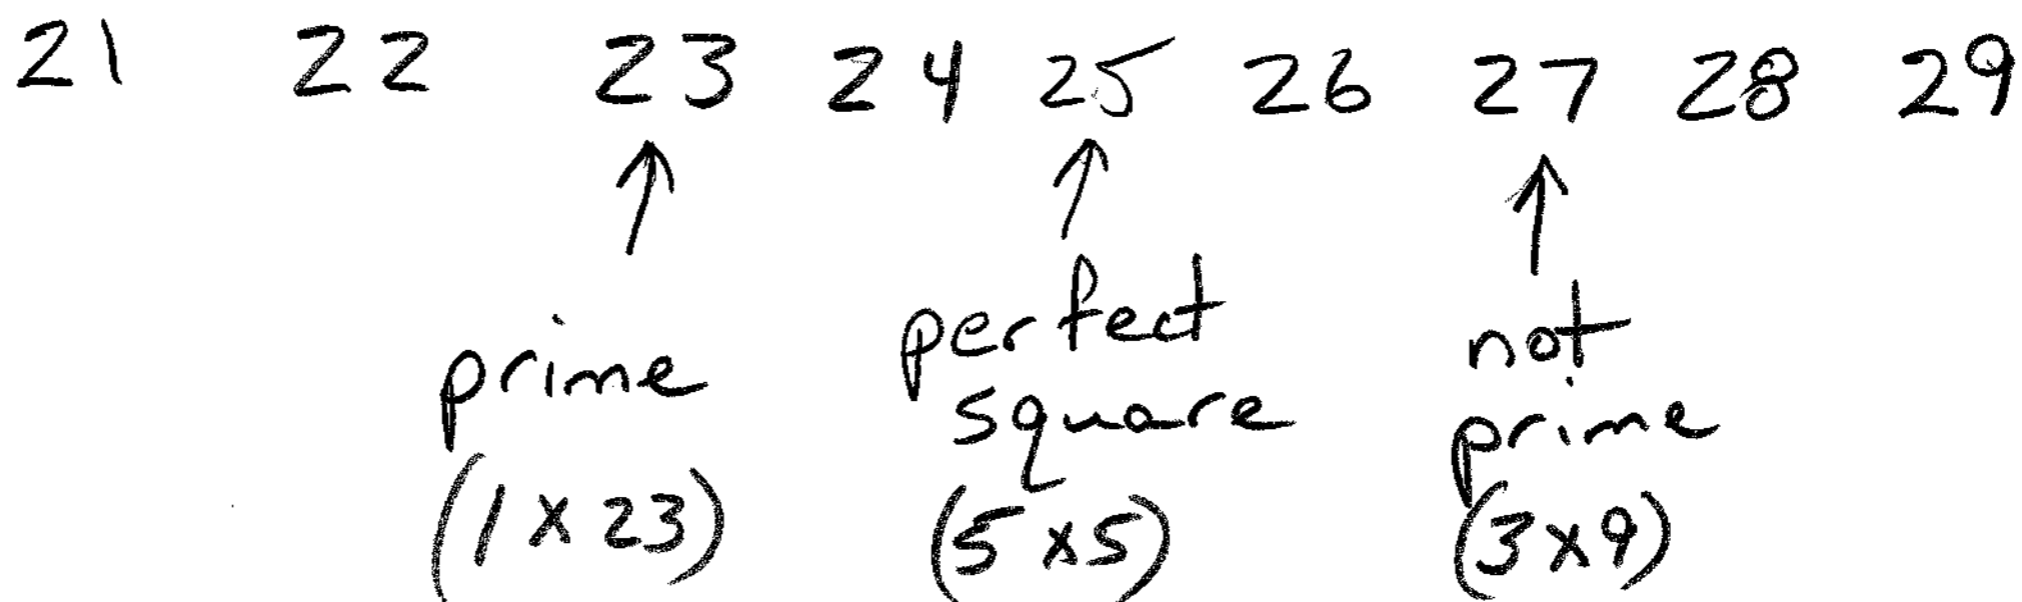 21 22 23 24 25 26 27 28 29
prime
(1 x 23)
perfect
square
(5 x 5)
not
prime
(3 x 9)